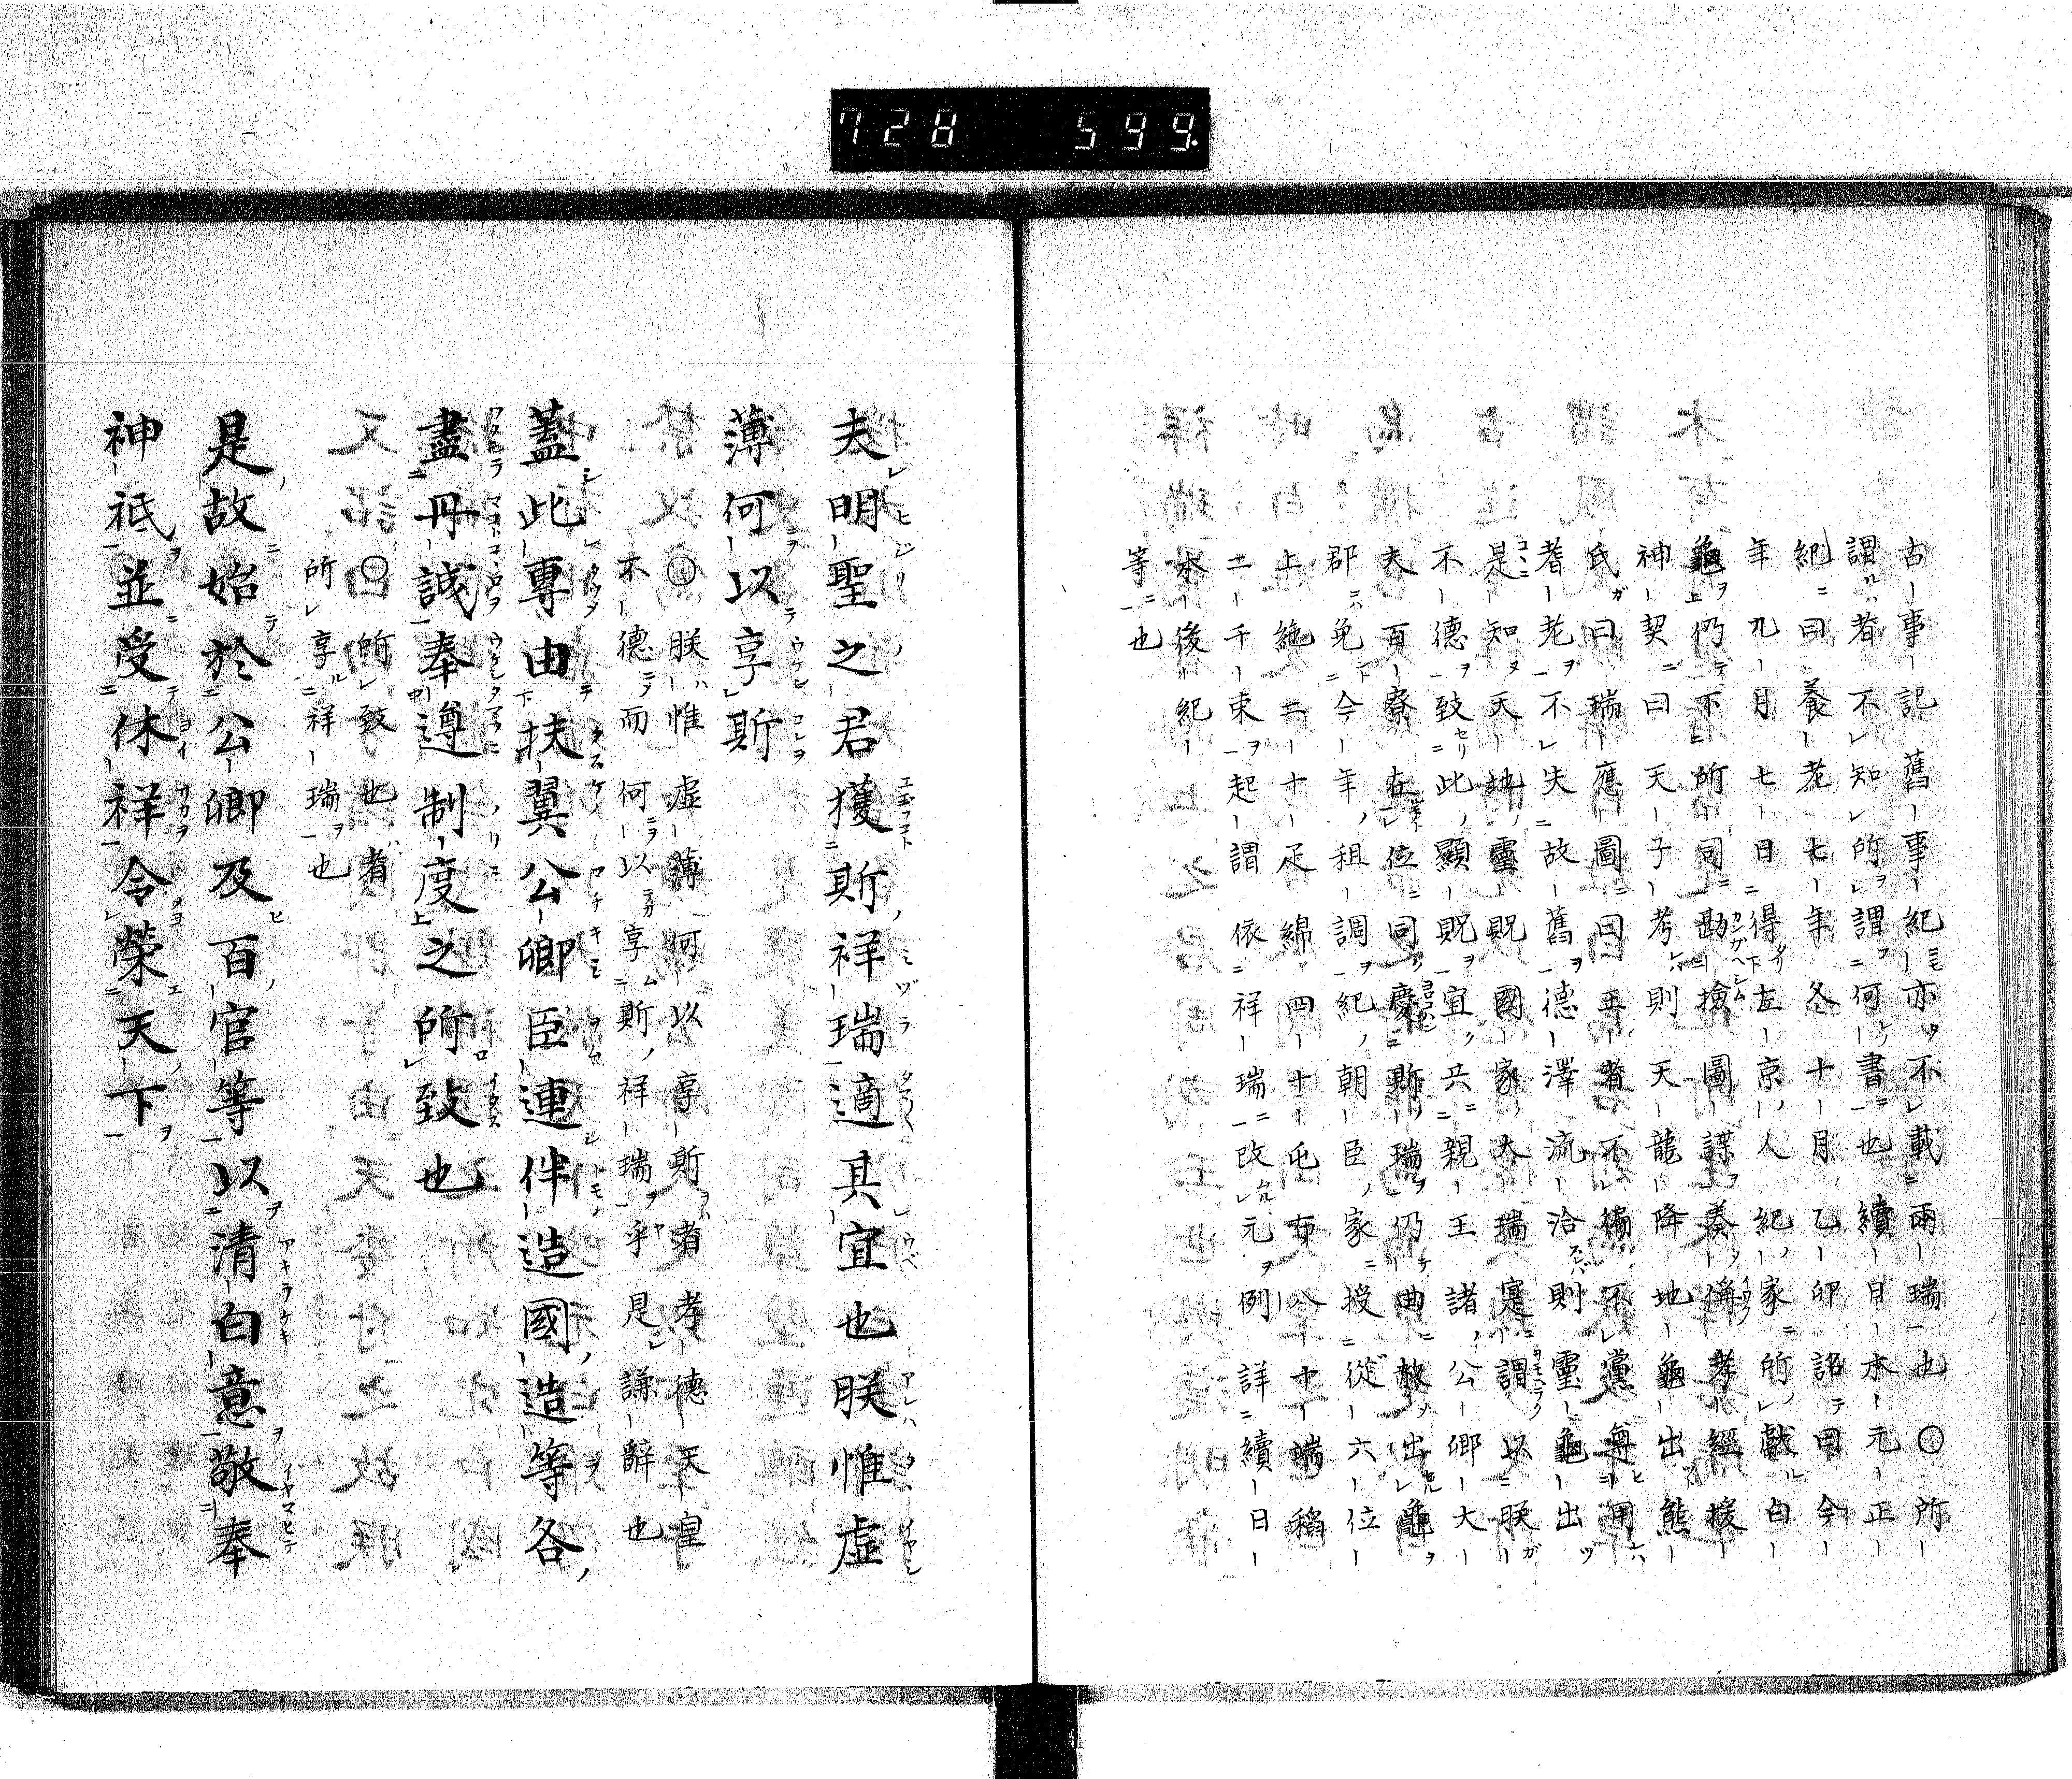 728 599
古事記舊事紀亦不載兩瑞也〇所
謂者不知所謂何書也續日本元正
紀曰養老七年冬十月乙卯詔曰今
年九月七日得左京人紀家所獻白
龜仍下所司勘撿圖諜奏偁孝經援
神契曰天子考則天龍降地龜出熊
氏曰瑞應圖曰王者不偏不黨尊用
耆老不失故舊德澤流洽則靈龜出
是知天地靈貺國家大瑞寔謂以朕
不德致此顯貺宜共親王諸公卿大
夫百寮在位同慶斯瑞仍曲赦出龜
郡免今年租調紀朝臣家授從六位
上絁二十疋綿四十屯布八十端稻
二千束起謂依祥瑞改元例詳續日
本後紀
等也
夫明聖之君獲斯祥瑞適其宜也朕惟虛
薄何以享斯
〇朕惟虛薄何以享斯者孝德天皇
不德而何以享斯祥瑞乎是謙辭也
蓋此專由扶翼公卿臣連伴造國造等各
盡丹誠奉遵制度之所致也
〇所致也者
所享祥瑞也
是故始於公卿及百官等以清白意敬奉
神祇並受休祥令榮天下